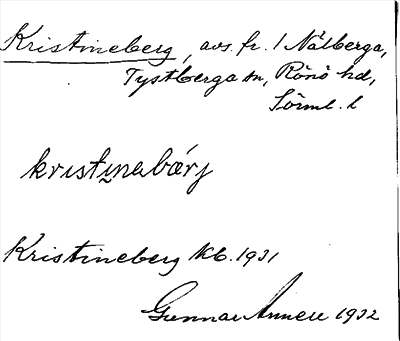 Kristineberg, avs. fr. 1 Nälberga,
Tystberga sn, Rönö hd,
Sörml. l
kristinabärj
Kristineberg kb. 1931
Gunnar Annell 1932